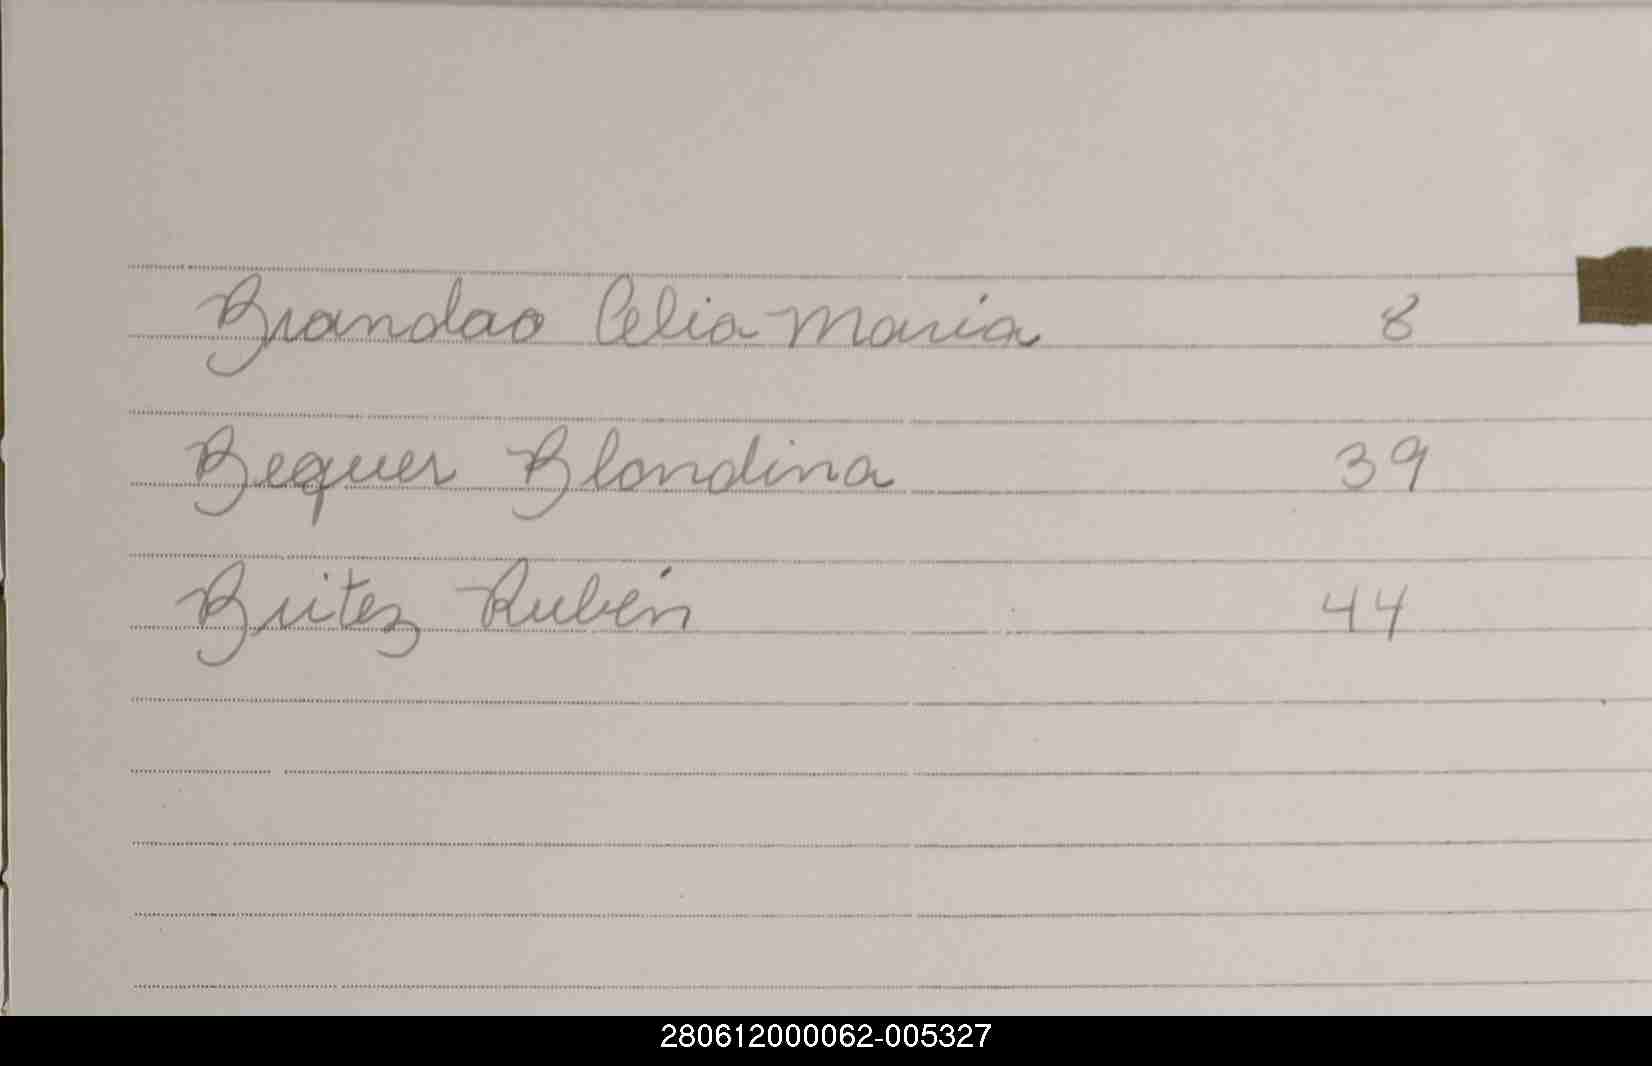 Brandao Celia Maria 8
Bequer Blondina 39
Britez Rubén 44
280612000062-005327